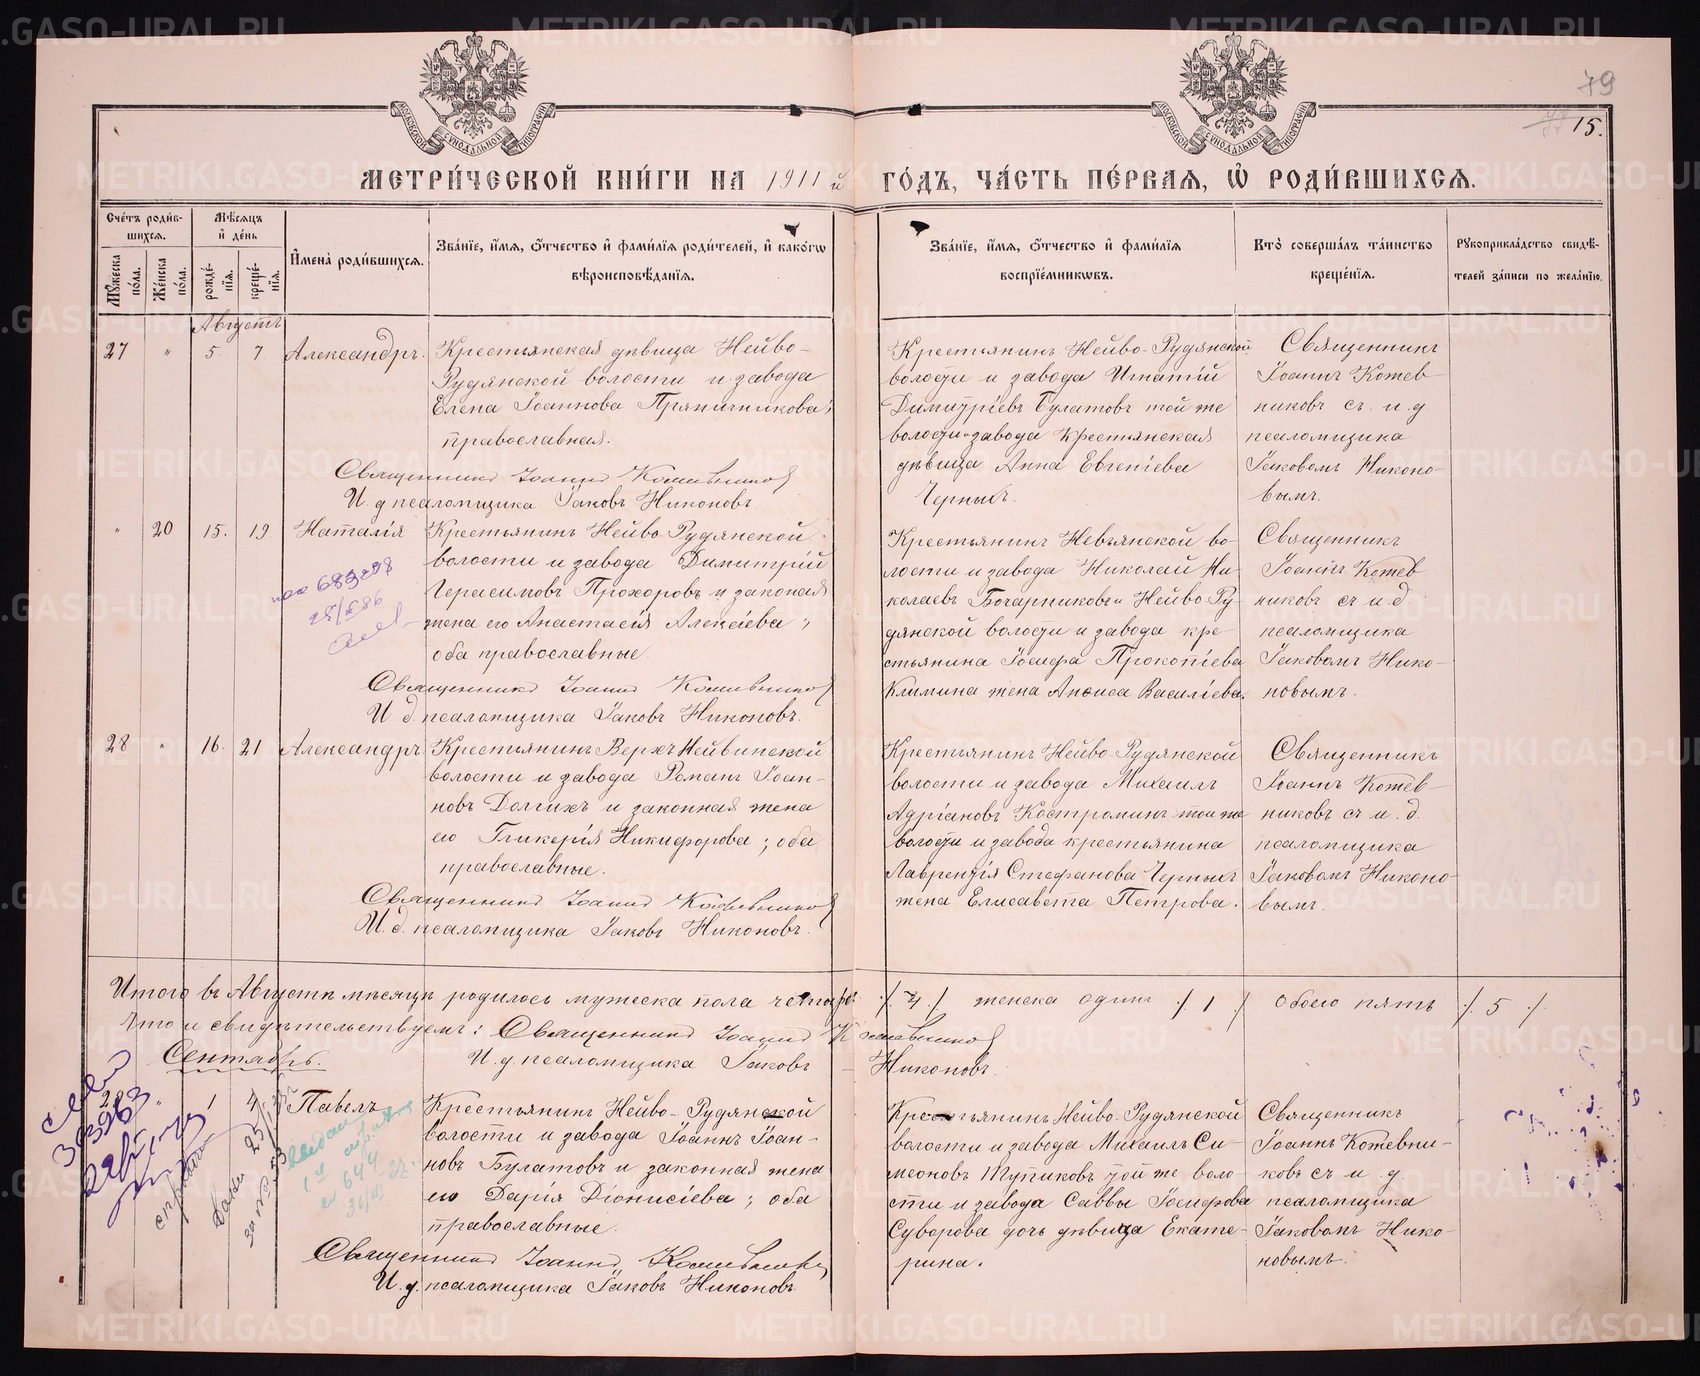 METRIKI.GASO-URAL.RU
79
15.
МОСКОВСКОЙ СѴНОДАЛЬНОЙ ТИПОГРАФІИ
МОСКОВСКОЙ СѴНОДАЛЬНОЙ ТИПОГРАФІИ
МЕТРИ́ЧЕСКОЙ КНИ́ГИ НА 1911 й ГО́ДЪ, ЧА́СТЬ ПЕ́РВАЯ, Ѡ РОДИ́ВШИХСЯ.
Сче́тъ роди́в-
шихся.
Мѣ́сяцъ
и҆ де́нь
Мꙋ́жеска по́ла.
Же́нска по́ла.
рожде́-
нїя.
креще́-
нїя.
И҆мена̀ роди́вшихся.
Зва́нїе, и҆́мя, ѻ҆́тчество и҆ фами́лїя роди́телей, и҆ како́гѡ
вѣроисповѣ́данїя.
Зва́нїе, и҆́мя, ѻ҆́тчество и҆ фами́лїя
воспрїе́мникѡвъ.
Кто̀ соверша́лъ та́инство
креще́нїя.
Рꙋкоприкла́дство свидѣ́-
телей за́писи по жела́нїю.
Августъ
27 " 5. 7. Александръ.
Крестьянская дѣвица Нейво-
Рудянской волости и завода
Елена Іоаннова Пряничникова;
православная.
Священникъ Іоаннъ Кожевниковъ
И. д псаломщика Іаковъ Никоновъ.
Крестьянинъ Нейво-Рудянской
волости и завода Игнатій
Димитріевъ Булатовъ той же
волости и завода крестьянская
дѣвица Анна Евгеніева
Черныхъ.
Священникъ
Іоаннъ Кожев-
никовъ съ и. д.
псаломщика
Іаковомъ Никоно-
вымъ.
" 20 15. 19 Наталія
Крестьянинъ Нейво-Рудянской
волости и завода Димитрій
Герасимовъ Прохоровъ и законная
жена его Анастасія Алексіева;
оба православные.
Священникъ Іоаннъ Кожевниковъ
И. д. псаломщика Іаковъ Никоновъ.
Крестьянинъ Невьянской во-
лости и завода Николай Ни-
колаевъ Бочарниковъ и Нейво-Ру-
дянской волости и завода кре-
стьянина Іосифа Прокопіева
Климина жена Анѳиса Василіева.
Священникъ
Іоаннъ Кожев
никовъ съ и д
псаломщика
Іаковомъ Нико-
новымъ.
28 " 16. 21 Александръ
Крестьянинъ Верхъ Нейвинской
волости и завода Романъ Іоан-
новъ Долгихъ и законная жена
его Гликерія Никифорова; оба
православные.
Священникъ Іоаннъ Кожевниковъ
И. д. псаломщика Іаковъ Никоновъ.
Крестьянинъ Нейво-Рудянской
волости и завода Михаилъ
Адріановъ Костроминъ той же
волости и завода крестьянина
Лаврентія Стефанова Черныхъ
жена Елисавета Петрова.
Священникъ
Іоаннъ Кожев-
никовъ съ и. д.
псаломщика
Іаковомъ Никоно-
вымъ.
Итого въ Августѣ мѣсяцѣ родилось мужеска пола четыре ./. 4 ./. женска одинъ ./. 1 ./. обоего пять ./. 5 ./.
Что и свидѣтельствуемъ: Священникъ Іоаннъ Кожевниковъ
И. д. псаломщика Іаковъ Никоновъ.
Сентябрь.
29 " 1 4 Павелъ
Крестьянинъ Нейво-Рудянской
волости и завода Іоаннъ Іоан-
новъ Булатовъ и законная жена
его Дарія Діонисіева; оба
православные.
Священникъ Іоаннъ Кожевниковъ
И. д. псаломщика Іаковъ Никоновъ.
Крестьянинъ Нейво-Рудянской
волости и завода Михаилъ Си-
меоновъ Тупиковъ той же воло-
сти и завода Саввы Іосифова
Суворова дочь дѣвица Екате-
рина.
Священникъ
Іоаннъ Кожевни-
ковъ съ и д.
псаломщика
Іаковомъ Нико-
новымъ.